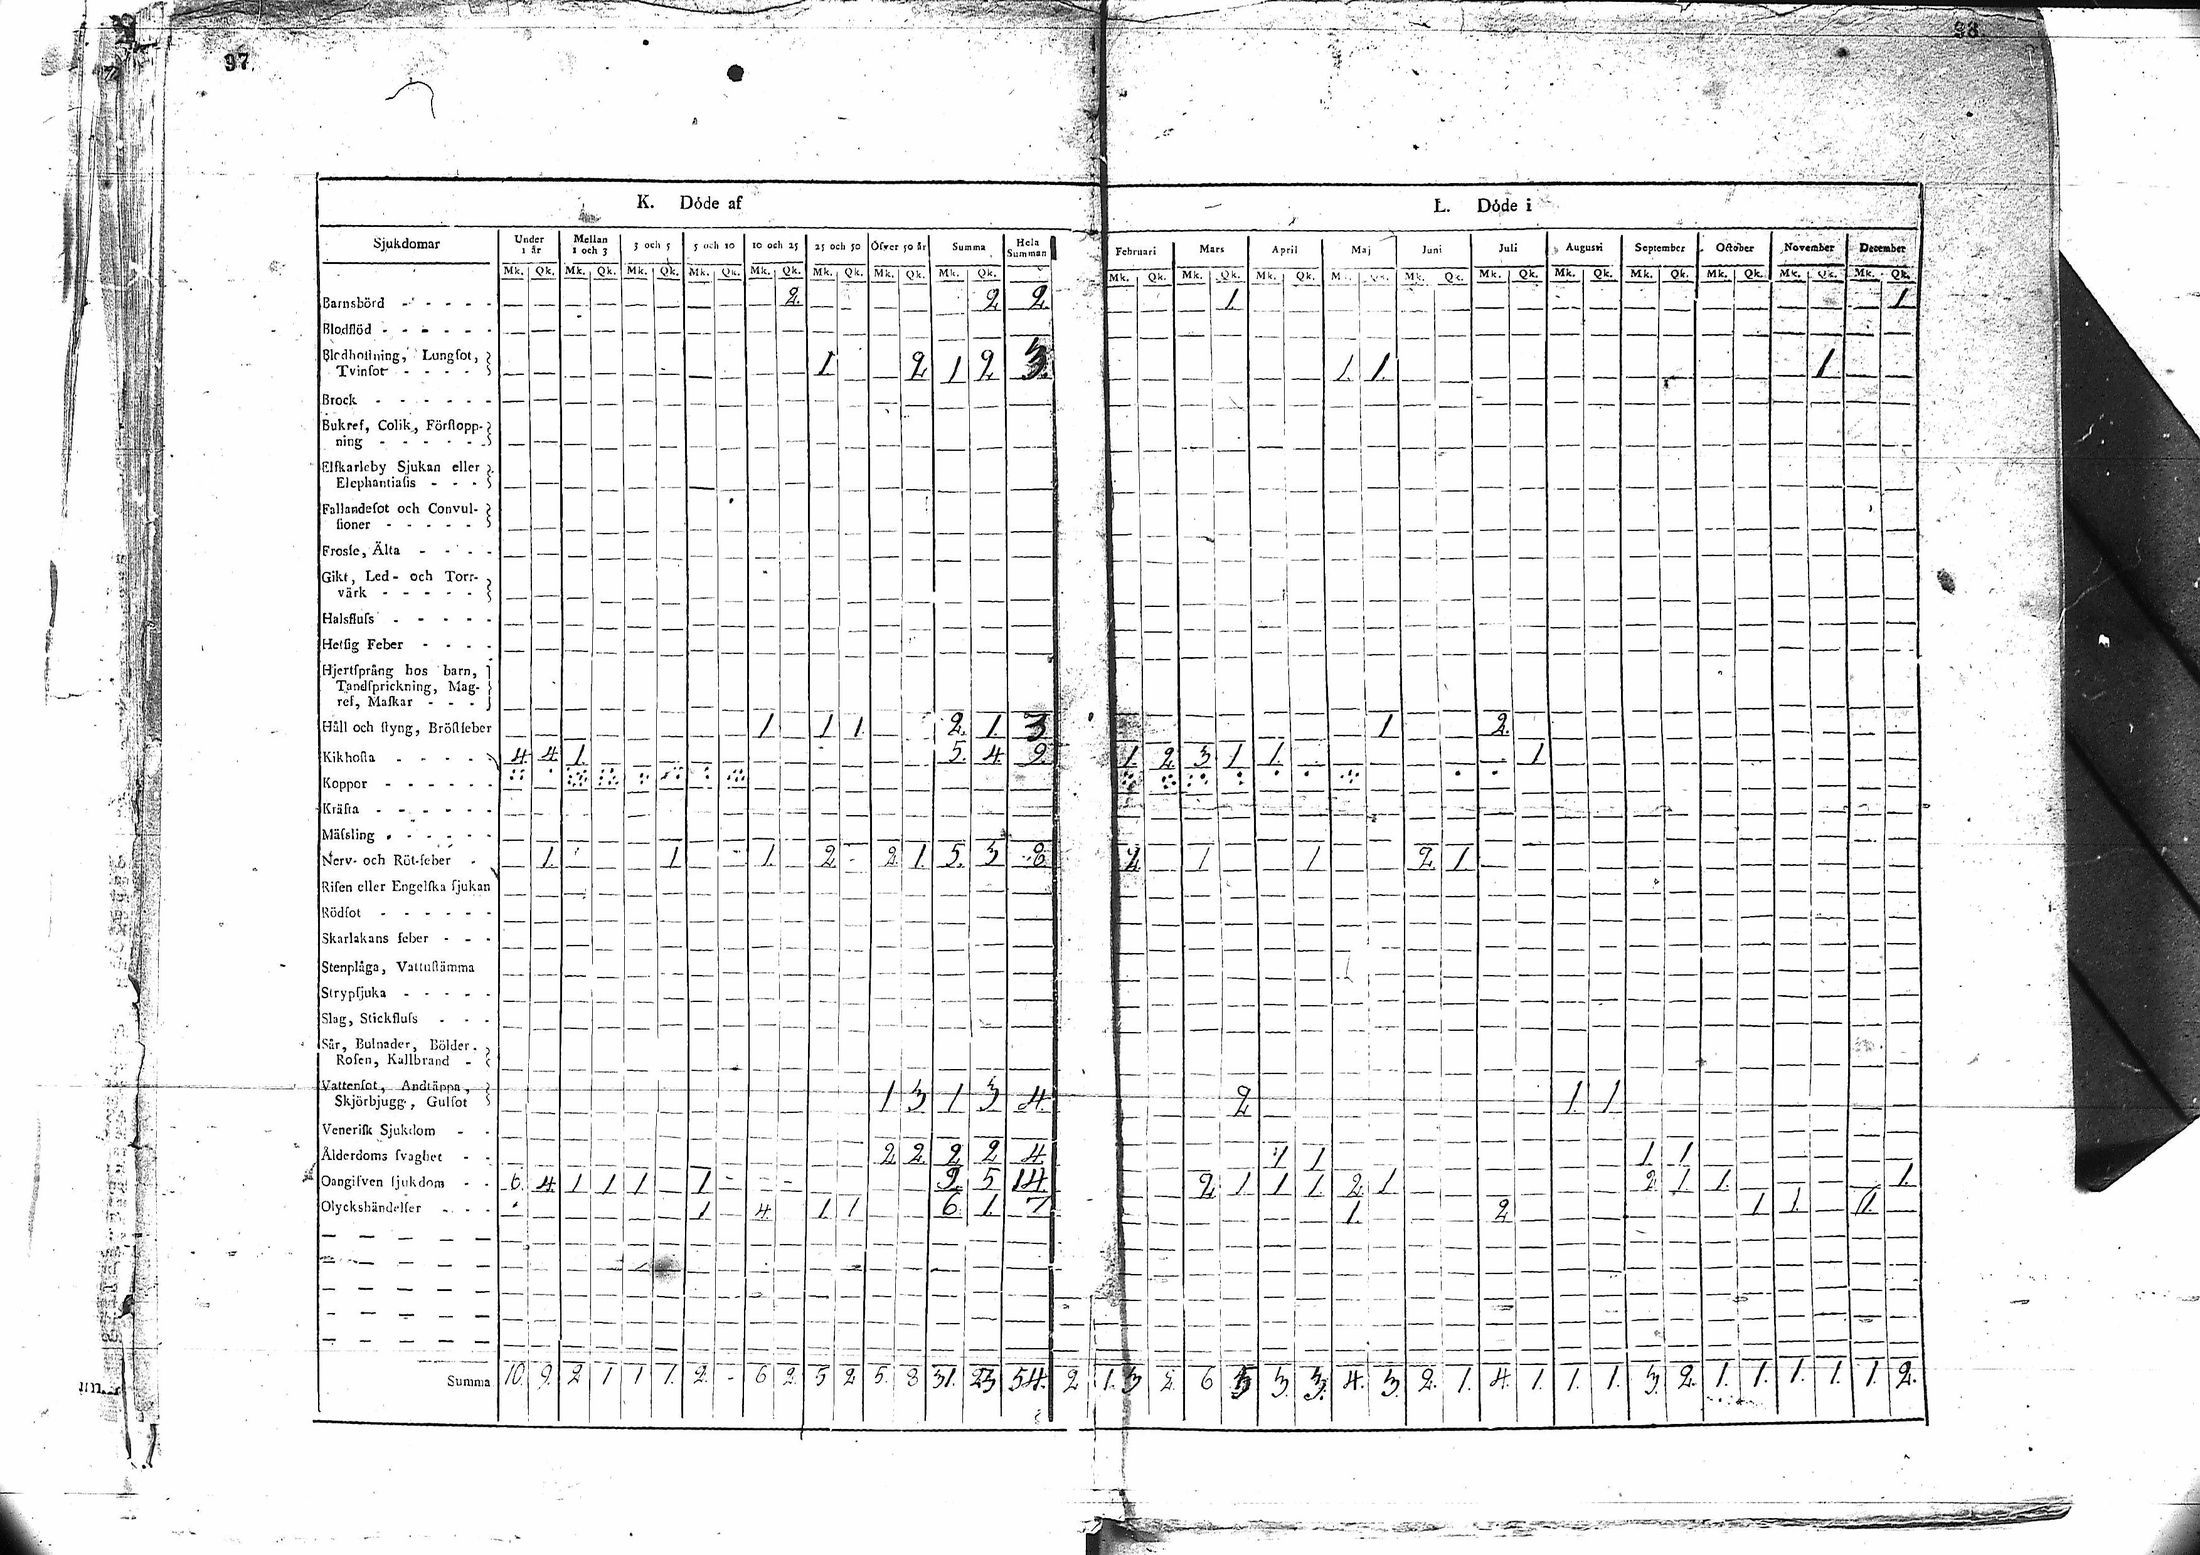 97.
98.
K. Döde af
L. Döde i
Sjukdomar Under 1 år Mellan 1 och 3 3 och 5 5 och 10 10 och 25 25 och 50 Öfver 50 år Summa Hela Summan Februari Mars April Maj Juni Juli Augusti September October November December
Mk. Qk. Mk. Qk. Mk. Qk. Mk. Qk. Mk. Qk. Mk. Qk. Mk. Qk. Mk. Qk. Mk. Qk. Mk. Qk. Mk. Qk. Mk. Qk. Mk. Qk. Mk. Qk. Mk. Qk. Mk. Qk. Mk. Qk. Mk. Qk. Mk. Qk.
Barnsbörd - - - - - 2 2 2 1 1
Blodflöd - - - - - -
Blodhostning, Lungsot,
Tvinsot - - - - 1 2 1 2 3 1 1 1
Brock - - - - - -
Bukref, Colik, Förstopp-
ning - - - - -
Elfkarleby Sjukan eller
Elephantiasis - - -
Fallandesot och Convul-
sioner - - - - -
Frossa, Älta - - - -
Gikt, Led- och Torr-
värk - - - - -
Halsfluss - - - - -
Hetsig Feber - - - -
Hjertsprång hos barn,
Tandsprickning, Mag-
ref, Maskar - - -
Håll och styng, Bröstfeber 1 1 1 2 1 3 1 2
Kikhosta - - - - - 4 4 1 5 4 9 1 2 3 1 1 1
Koppor - - - - - -
Kräfta - - - - - -
Mässling - - - - - -
Nerv- och Röt-feber - 1 1 1 2 2 1 5 3 8 2 1 1 2 1
Risen eller Engelska sjukan
Rödsot - - - - - -
Skarlakans feber - - -
Stenplåga, Vattustämma
Strypsjuka - - - - -
Slag, Stickfluss - - -
Sår, Bulnader, Bölder,
Rosen, Kallbrand -
Vattensot, Andtäppa,
Skjörbjugg, Gulsot 1 3 1 3 4 2 1 1
Venerisk Sjukdom - -
Ålderdoms svaghet - - 2 2 2 2 4 1 1 1 1
Oangifven sjukdom - - 6 4 1 1 1 1 9 5 14 2 1 1 1 2 1 2 1 1 1
Olyckshändelser - - - 1 4 1 1 6 1 7 1 2 1 1 1
Summa 10 9 2 1 1 1 2 - 6 2 5 2 5 8 31 23 54 2 1 3 2 6 5 3 3 4 3 2 1 4 1 1 1 3 2 1 1 1 1 1 2